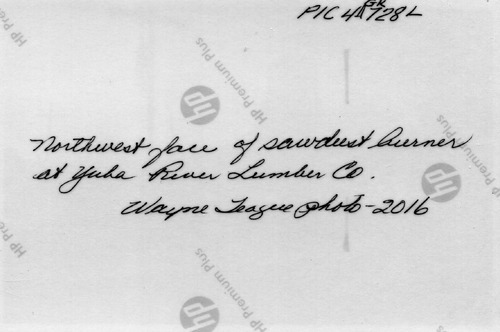 PIC 4 728L
GR
Northwest face of sawdust burner
at Yuba River Lumber Co.
Wayne Teague photo - 2016
hp HP Premium Plus
hp HP Premium Plus
hp HP Premium Plus
HP Premium Plus
HP Premium Plus